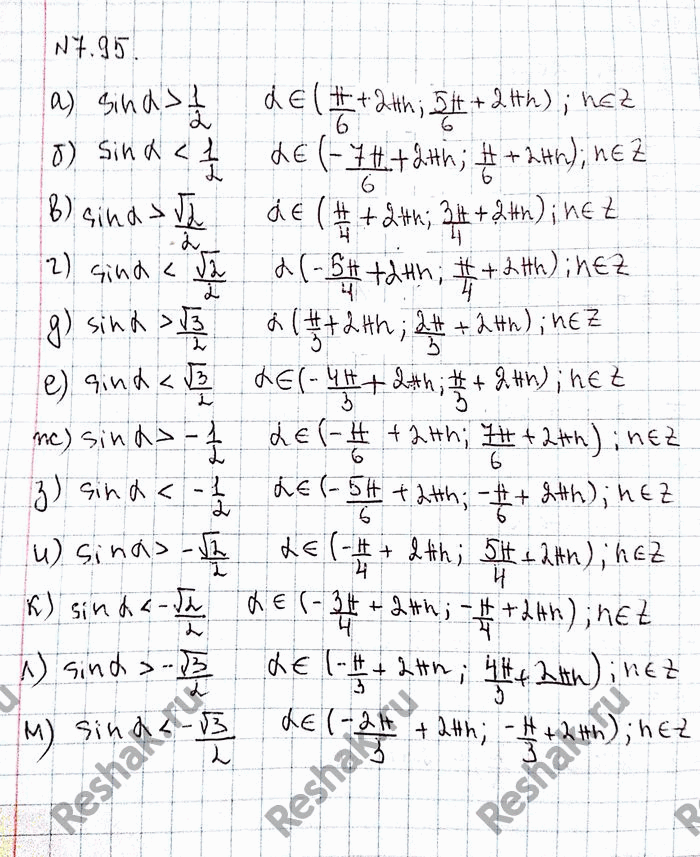 N7.95.
а) sinα > 1/2 α∈(π/6 + 2πn; 5π/6 + 2πn); n∈Z
б) sinα < 1/2 α∈(-7π/6 + 2πn; π/6 + 2πn); n∈Z
в) sinα > √2/2 α∈(π/4 + 2πn; 3π/4 + 2πn); n∈Z
г) sinα < √2/2 α(-5π/4 + 2πn; π/4 + 2πn); n∈Z
д) sinα > √3/2 α(π/3 + 2πn; 2π/3 + 2πn); n∈Z
е) sinα < √3/2 α∈(-4π/3 + 2πn; π/3 + 2πn); n∈Z
ж) sinα > -1/2 α∈(-π/6 + 2πn; 7π/6 + 2πn); n∈Z
з) sinα < -1/2 α∈(-5π/6 + 2πn; -π/6 + 2πn); n∈Z
и) sinα > -√2/2 α∈(-π/4 + 2πn; 5π/4 + 2πn); n∈Z
к) sinα < -√2/2 α∈(-3π/4 + 2πn; -π/4 + 2πn); n∈Z
л) sinα > -√3/2 α∈(-π/3 + 2πn; 4π/3 + 2πn); n∈Z
м) sinα < -√3/2 α∈(-2π/3 + 2πn; -π/3 + 2πn); n∈Z
Reshak.ru
Reshak.ru
Reshak.ru